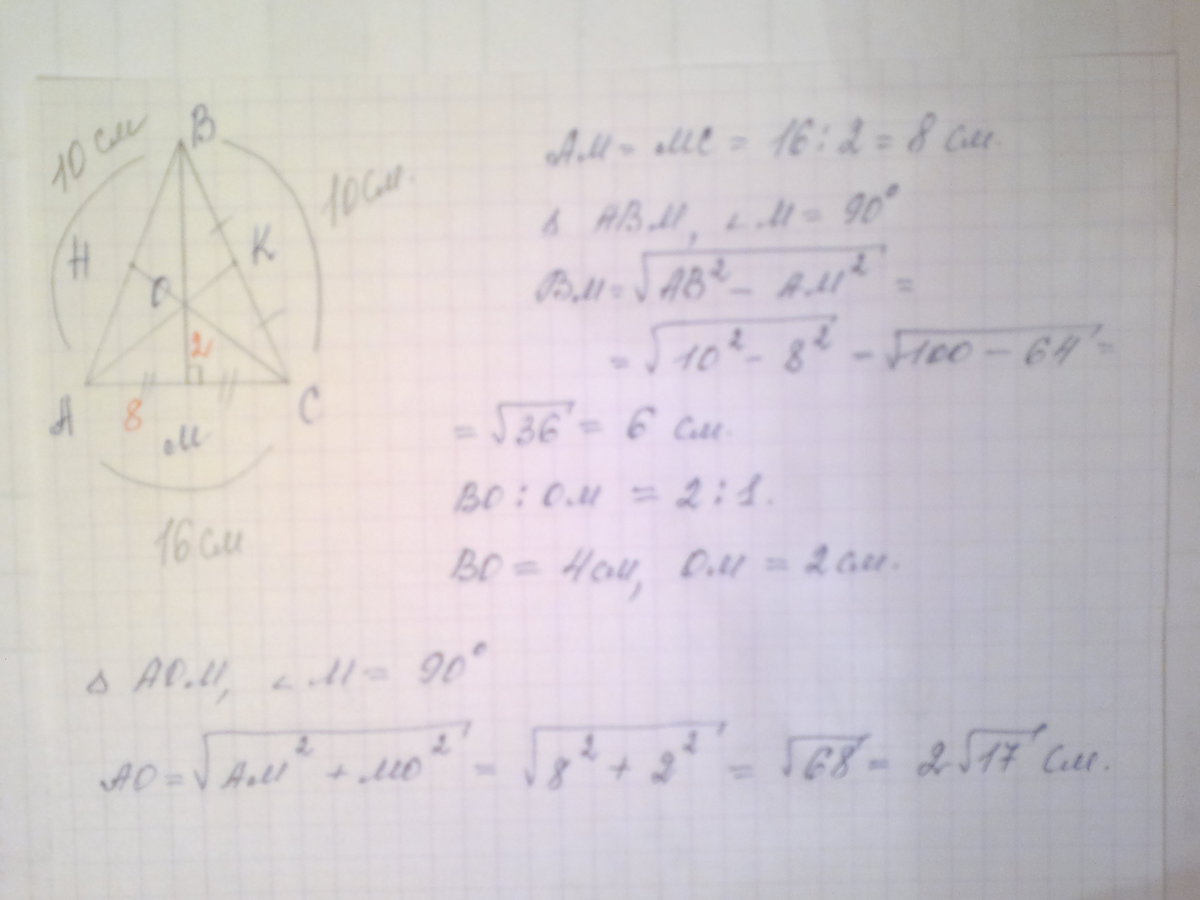 10 см
B
10 см.
H
K
O
2
A
8
M
C
16 см
AM = MC = 16 : 2 = 8 см.
Δ ABM, ∠M = 90°
BM = √AB² - AM² =
= √10² - 8² - √100 - 64 =
= √36 = 6 см.
BO : OM = 2 : 1.
BO = 4 см, OM = 2 см.
Δ AOM, ∠M = 90°
AO = √AM² + MO² = √8² + 2² = √68 = 2√17 см.